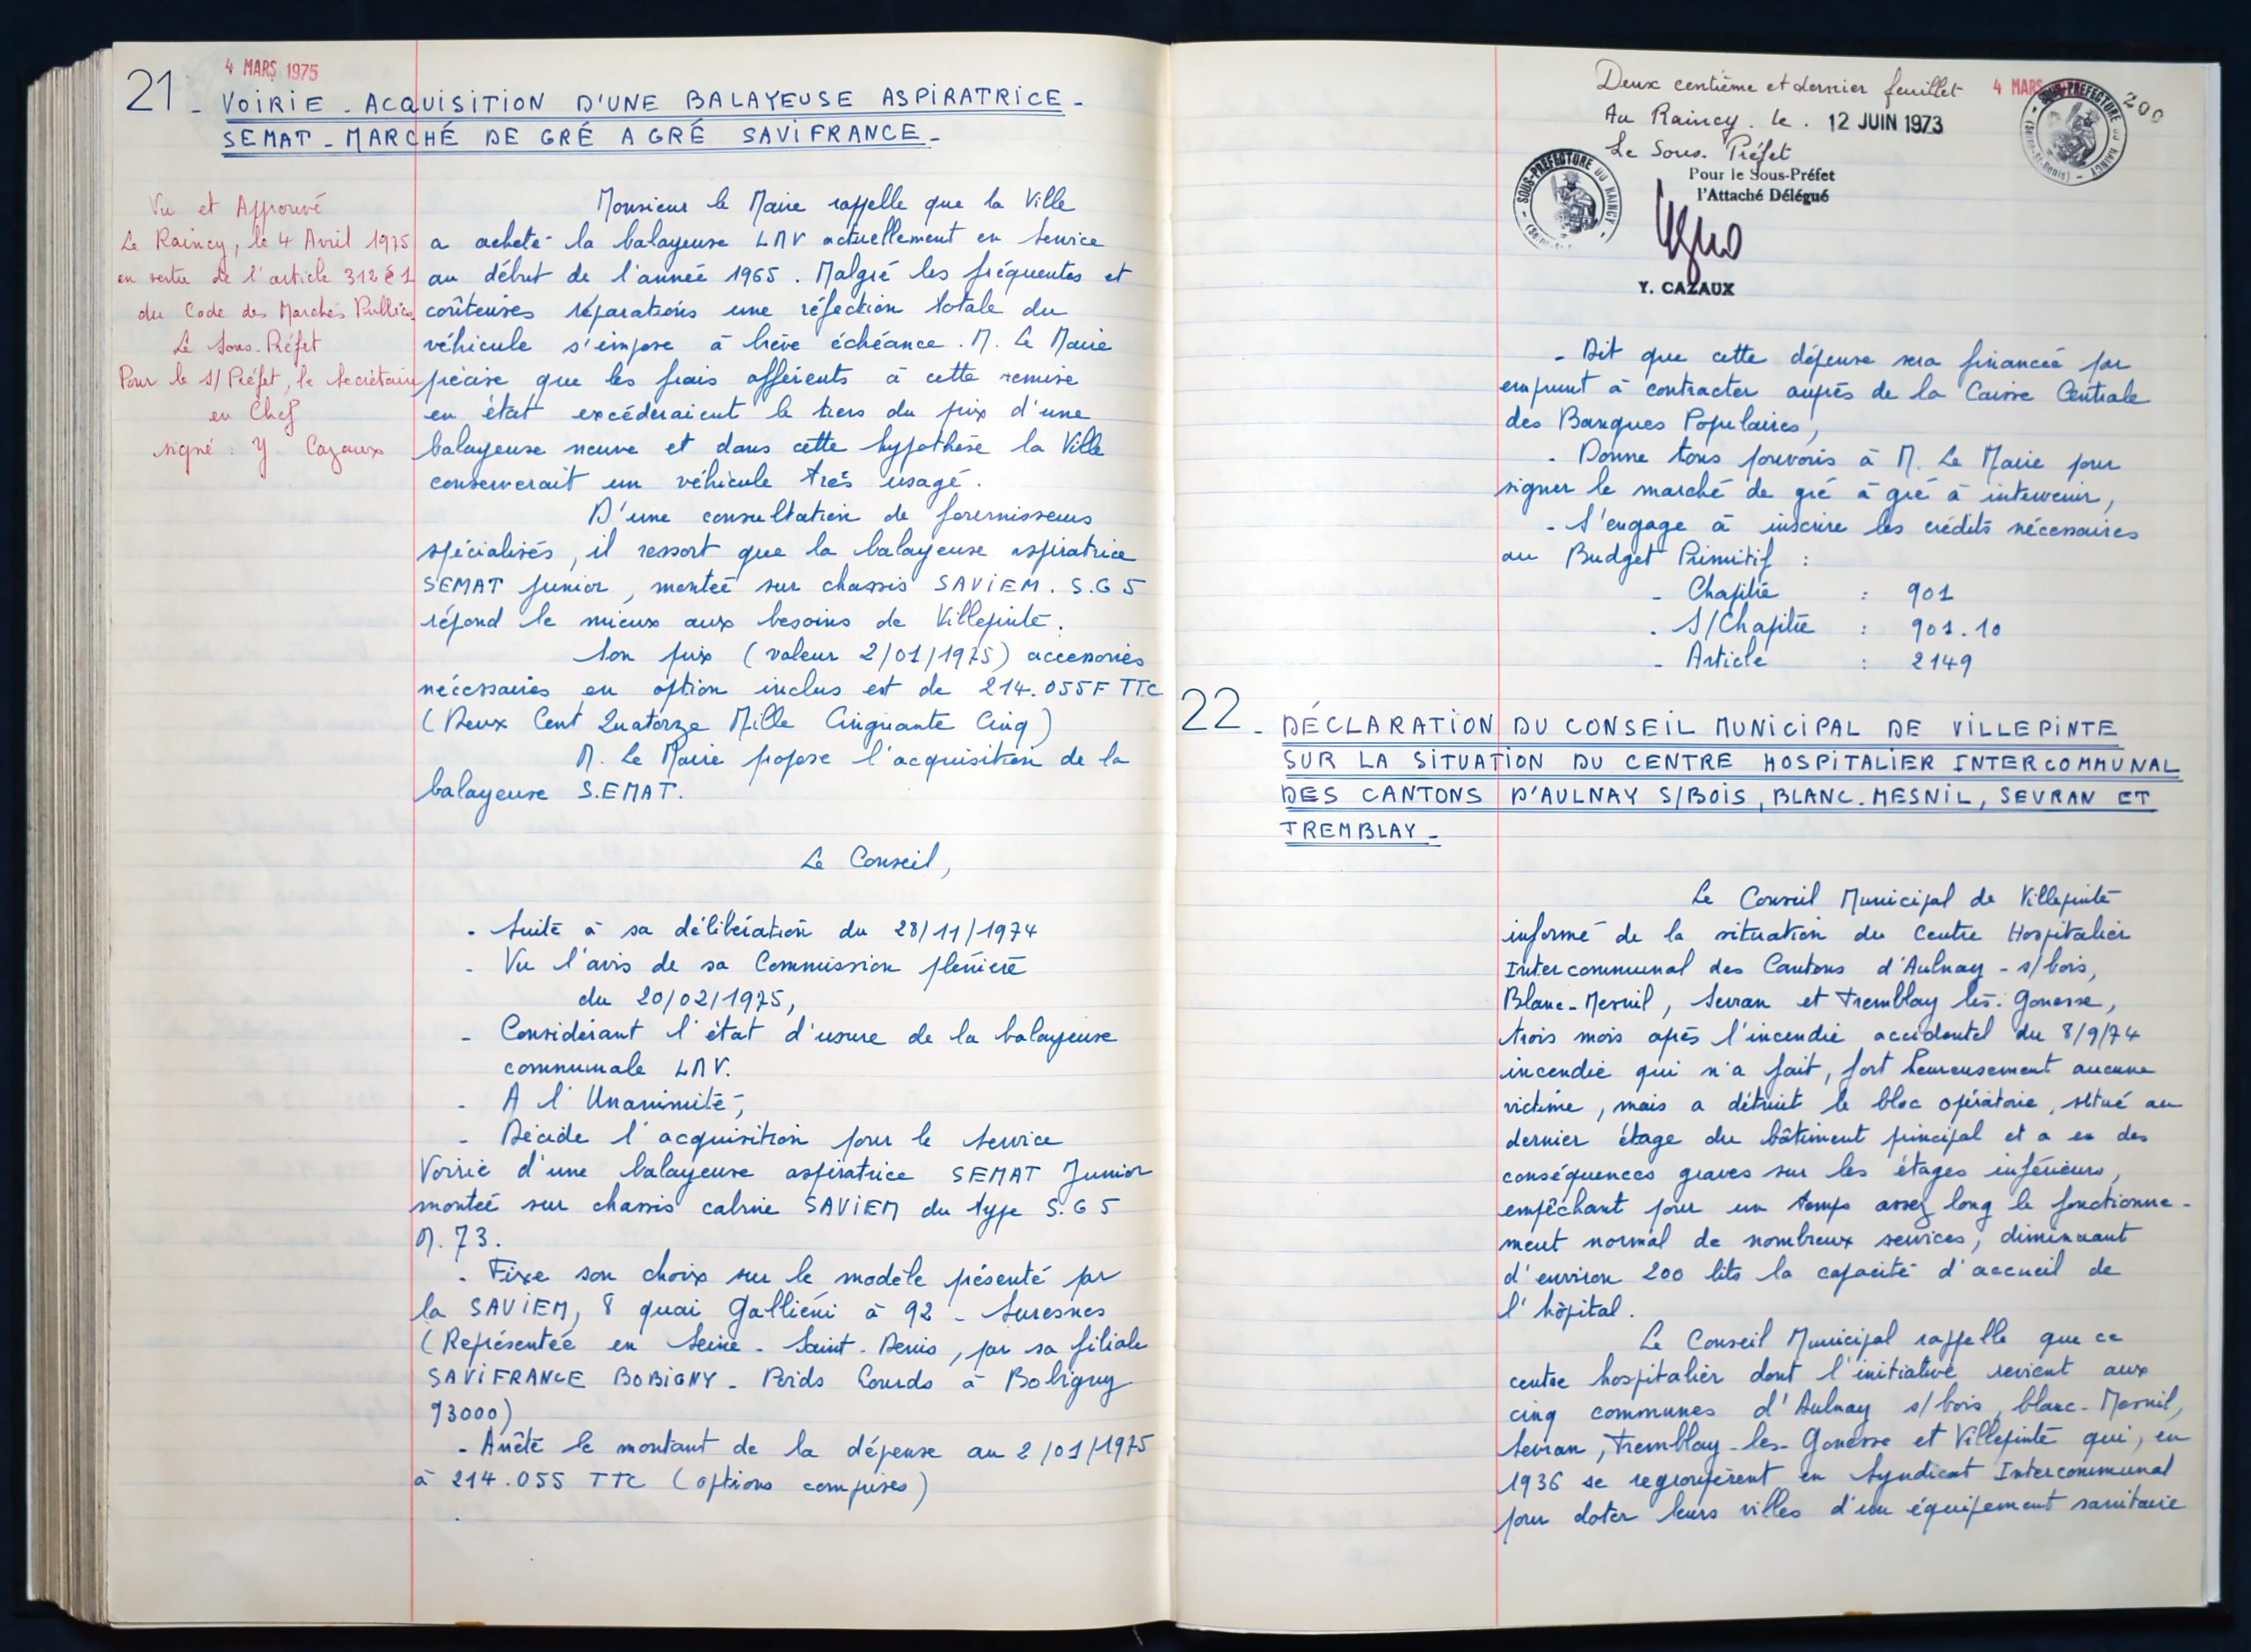 4 MARS 1975
21 - VOIRIE - ACQUISITION D'UNE BALAYEUSE ASPIRATRICE -
SEMAT - MARCHÉ DE GRÉ A GRÉ SAVIFRANCE -
Vu et Approuvé
Le Raincy, le 4 Avril 1975
en vertu de l'article 312 é 1
du Code des Marchés Publics
Le Sous-Préfet
Pour le S/Préfet, le Secrétaire
en Chef
signé : Y. Cazaux
Monsieur le Maire rappelle que la Ville
a acheté la balayeuse LMV actuellement en service
au début de l'année 1965. Malgré les fréquentes et
coûteuses réparations une réfection totale du
véhicule s'impose à brève échéance. M. Le Maire
précise que les frais afférents à cette remise
en état excéderaient le tiers du prix d'une
balayeuse neuve et dans cette hypothèse la Ville
conserverait un véhicule très usagé.
D'une consultation de fournisseurs
spécialisés, il ressort que la balayeuse aspiratrice
SEMAT junior, montée sur chassis SAVIEM. S.G 5
répond le mieux aux besoins de Villepinte.
Son prix (valeur 2/01/1975) accessoires
nécessaires en option inclus est de 214.055F TTC
(Deux Cent Quatorze Mille Cinquante Cinq)
M. Le Maire propose l'acquisition de la
balayeuse S.EMAT.
Le Conseil,
- Suite à sa délibération du 28/11/1974
- Vu l'avis de sa Commission plénière
du 20/02/1975,
- Considérant l'état d'usure de la balayeuse
communale LMV.
- A l'Unanimité,
- Décide l'acquisition pour le Service
Voirie d'une balayeuse aspiratrice SEMAT Junior
montée sur chassis cabine SAVIEM du type S.G 5
M. 73.
- Fixe son choix sur le modèle présenté par
la SAVIEM, 8 quai Galliéni à 92 - Suresnes
(Représentée en Seine-Saint-Denis, par sa filiale
SAVIFRANCE BOBIGNY - Poids Lourds à Bobigny
93000)
- Arrête le montant de la dépense au 2/01/1975
à 214.055 TTC (options comprises)
Deux centième et dernier feuillet
4 MARS
200
Au Raincy. le. 12 JUIN 1973
Le Sous-Préfet
Pour le Sous-Préfet
l'Attaché Délégué
SOUS-PREFECTURE DU RAINCY
SOUS-PREFECTURE DU RAINCY
(Seine-St-Denis)
Y. CAZAUX
- Dit que cette dépense sera financée par
emprunt à contracter auprès de la Caisse Centrale
des Banques Populaires,
- Donne tous pouvoirs à M. Le Maire pour
signer le marché de gré à gré à intervenir,
- S'engage à inscrire les crédits nécessaires
au Budget Primitif :
- Chapitre : 901
- S/Chapitre : 901.10
- Article : 2149
22 - DÉCLARATION DU CONSEIL MUNICIPAL DE VILLEPINTE
SUR LA SITUATION DU CENTRE HOSPITALIER INTERCOMMUNAL
DES CANTONS D'AULNAY S/BOIS, BLANC-MESNIL, SEVRAN ET
TREMBLAY -
Le Conseil Municipal de Villepinte
informé de la situation du Centre Hospitalier
Intercommunal des Cantons d'Aulnay-s/bois,
Blanc-Mesnil, Sevran et Tremblay les-Gonesse,
trois mois après l'incendie accidentel du 8/9/74
incendie qui n'a fait, fort heureusement aucune
victime, mais a détruit le bloc opératoire, situé au
dernier étage du bâtiment principal et a eu des
conséquences graves sur les étages inférieurs,
empêchant pour un temps assez long le fonctionne-
ment normal de nombreux services, diminuant
d'environ 200 lits la capacité d'accueil de
l'hôpital.
Le Conseil Municipal rappelle que ce
centre hospitalier dont l'initiative revient aux
cinq communes d'Aulnay s/bois, blanc-Mesnil,
Sevran, Tremblay-les-Gonesse et Villepinte qui, en
1936 se regroupèrent en Syndicat Intercommunal
pour doter leurs villes d'un équipement sanitaire